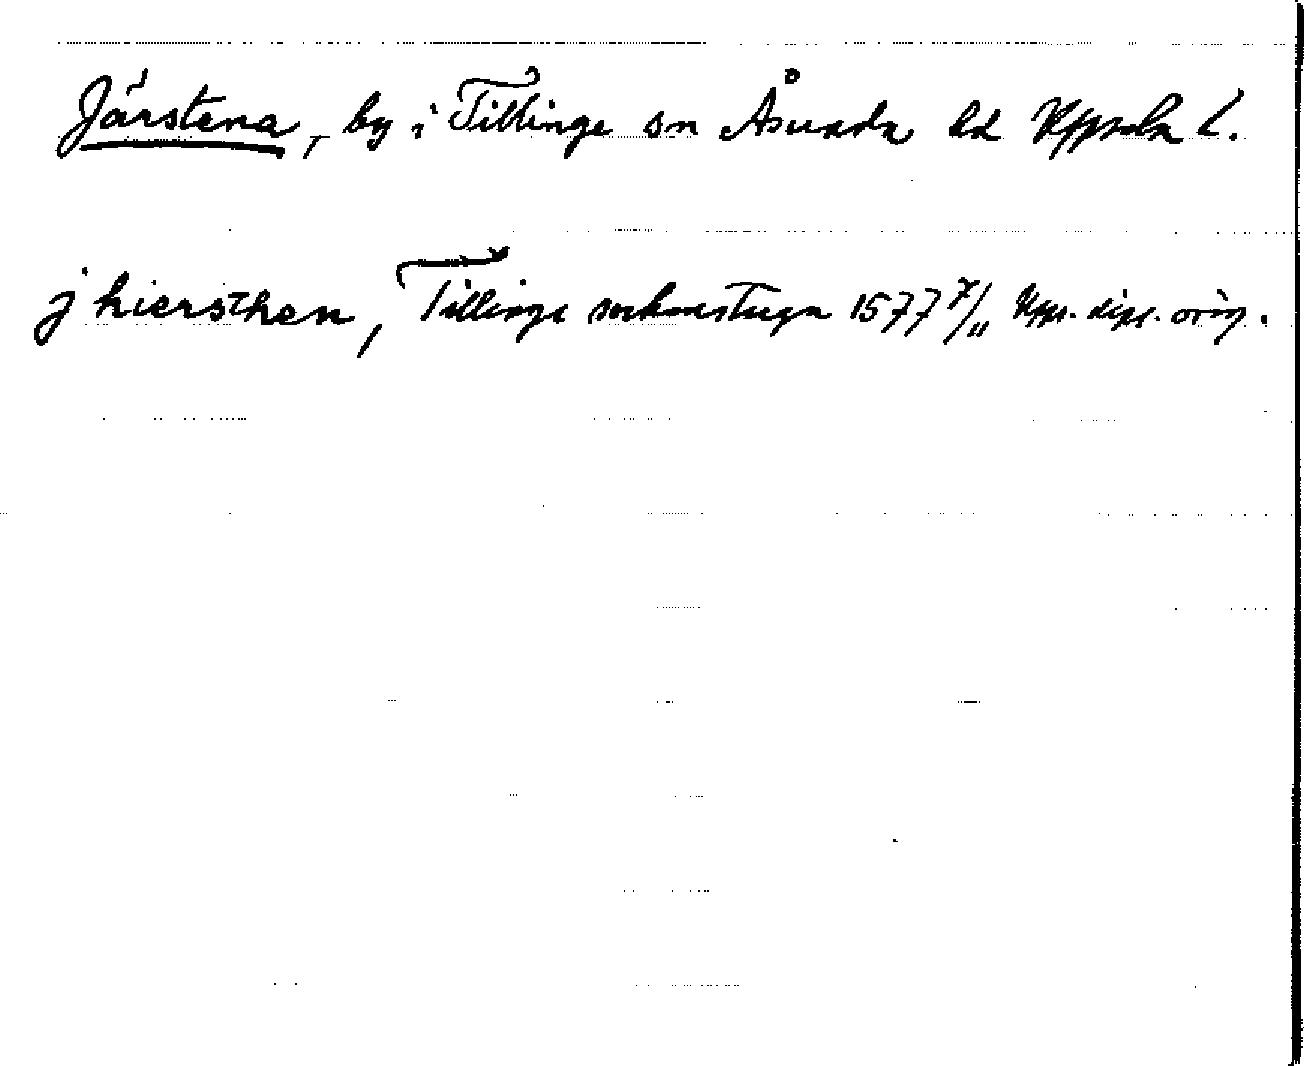 Järstena, by i Tillinge sn Åsunda hd Uppsala l.
j hiersthen, Tillinge sockenstuga 1577 7/11 Upps. dipl. orig.